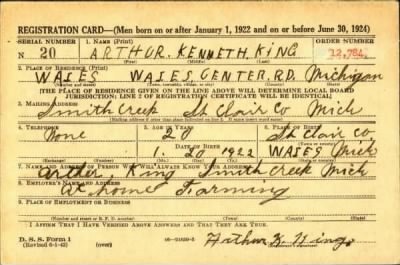 REGISTRATION CARD—(Men born on or after January 1, 1922 and on or before June 30, 1924)
SERIAL NUMBER 1. NAME (Print) ORDER NUMBER
N 20 ARTHUR. KENNETH. KING 12,784
2. PLACE OF RESIDENCE (Print)
WALES WALES CENTER. RD. Michigan
[THE PLACE OF RESIDENCE GIVEN ON THE LINE ABOVE WILL DETERMINE LOCAL BOARD
JURISDICTION; LINE 2 OF REGISTRATION CERTIFICATE WILL BE IDENTICAL]
3. MAILING ADDRESS
Smith Creek St Clair Co Mich
[Mailing address if other than place indicated on line 2. If same insert word same]
4. TELEPHONE 5. AGE IN YEARS
None 20 St Clair Co
DATE OF BIRTH
1. 20 1922 WALES Mich
7. NAME AND ADDRESS OF PERSON WHO WILL ALWAYS KNOW YOUR ADDRESS
King Smith Creek Mich
8. EMPLOYER'S NAME AND ADDRESS
At home Farming
9. PLACE OF EMPLOYMENT OR BUSINESS
I AFFIRM THAT I HAVE VERIFIED ABOVE ANSWERS AND THAT THEY ARE TRUE.
D. S. S. Form 1
(Revised 6-1-42)
Arthur K. King